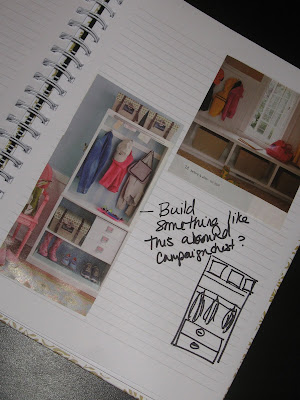 — Build
something like
this around
campaign chest?